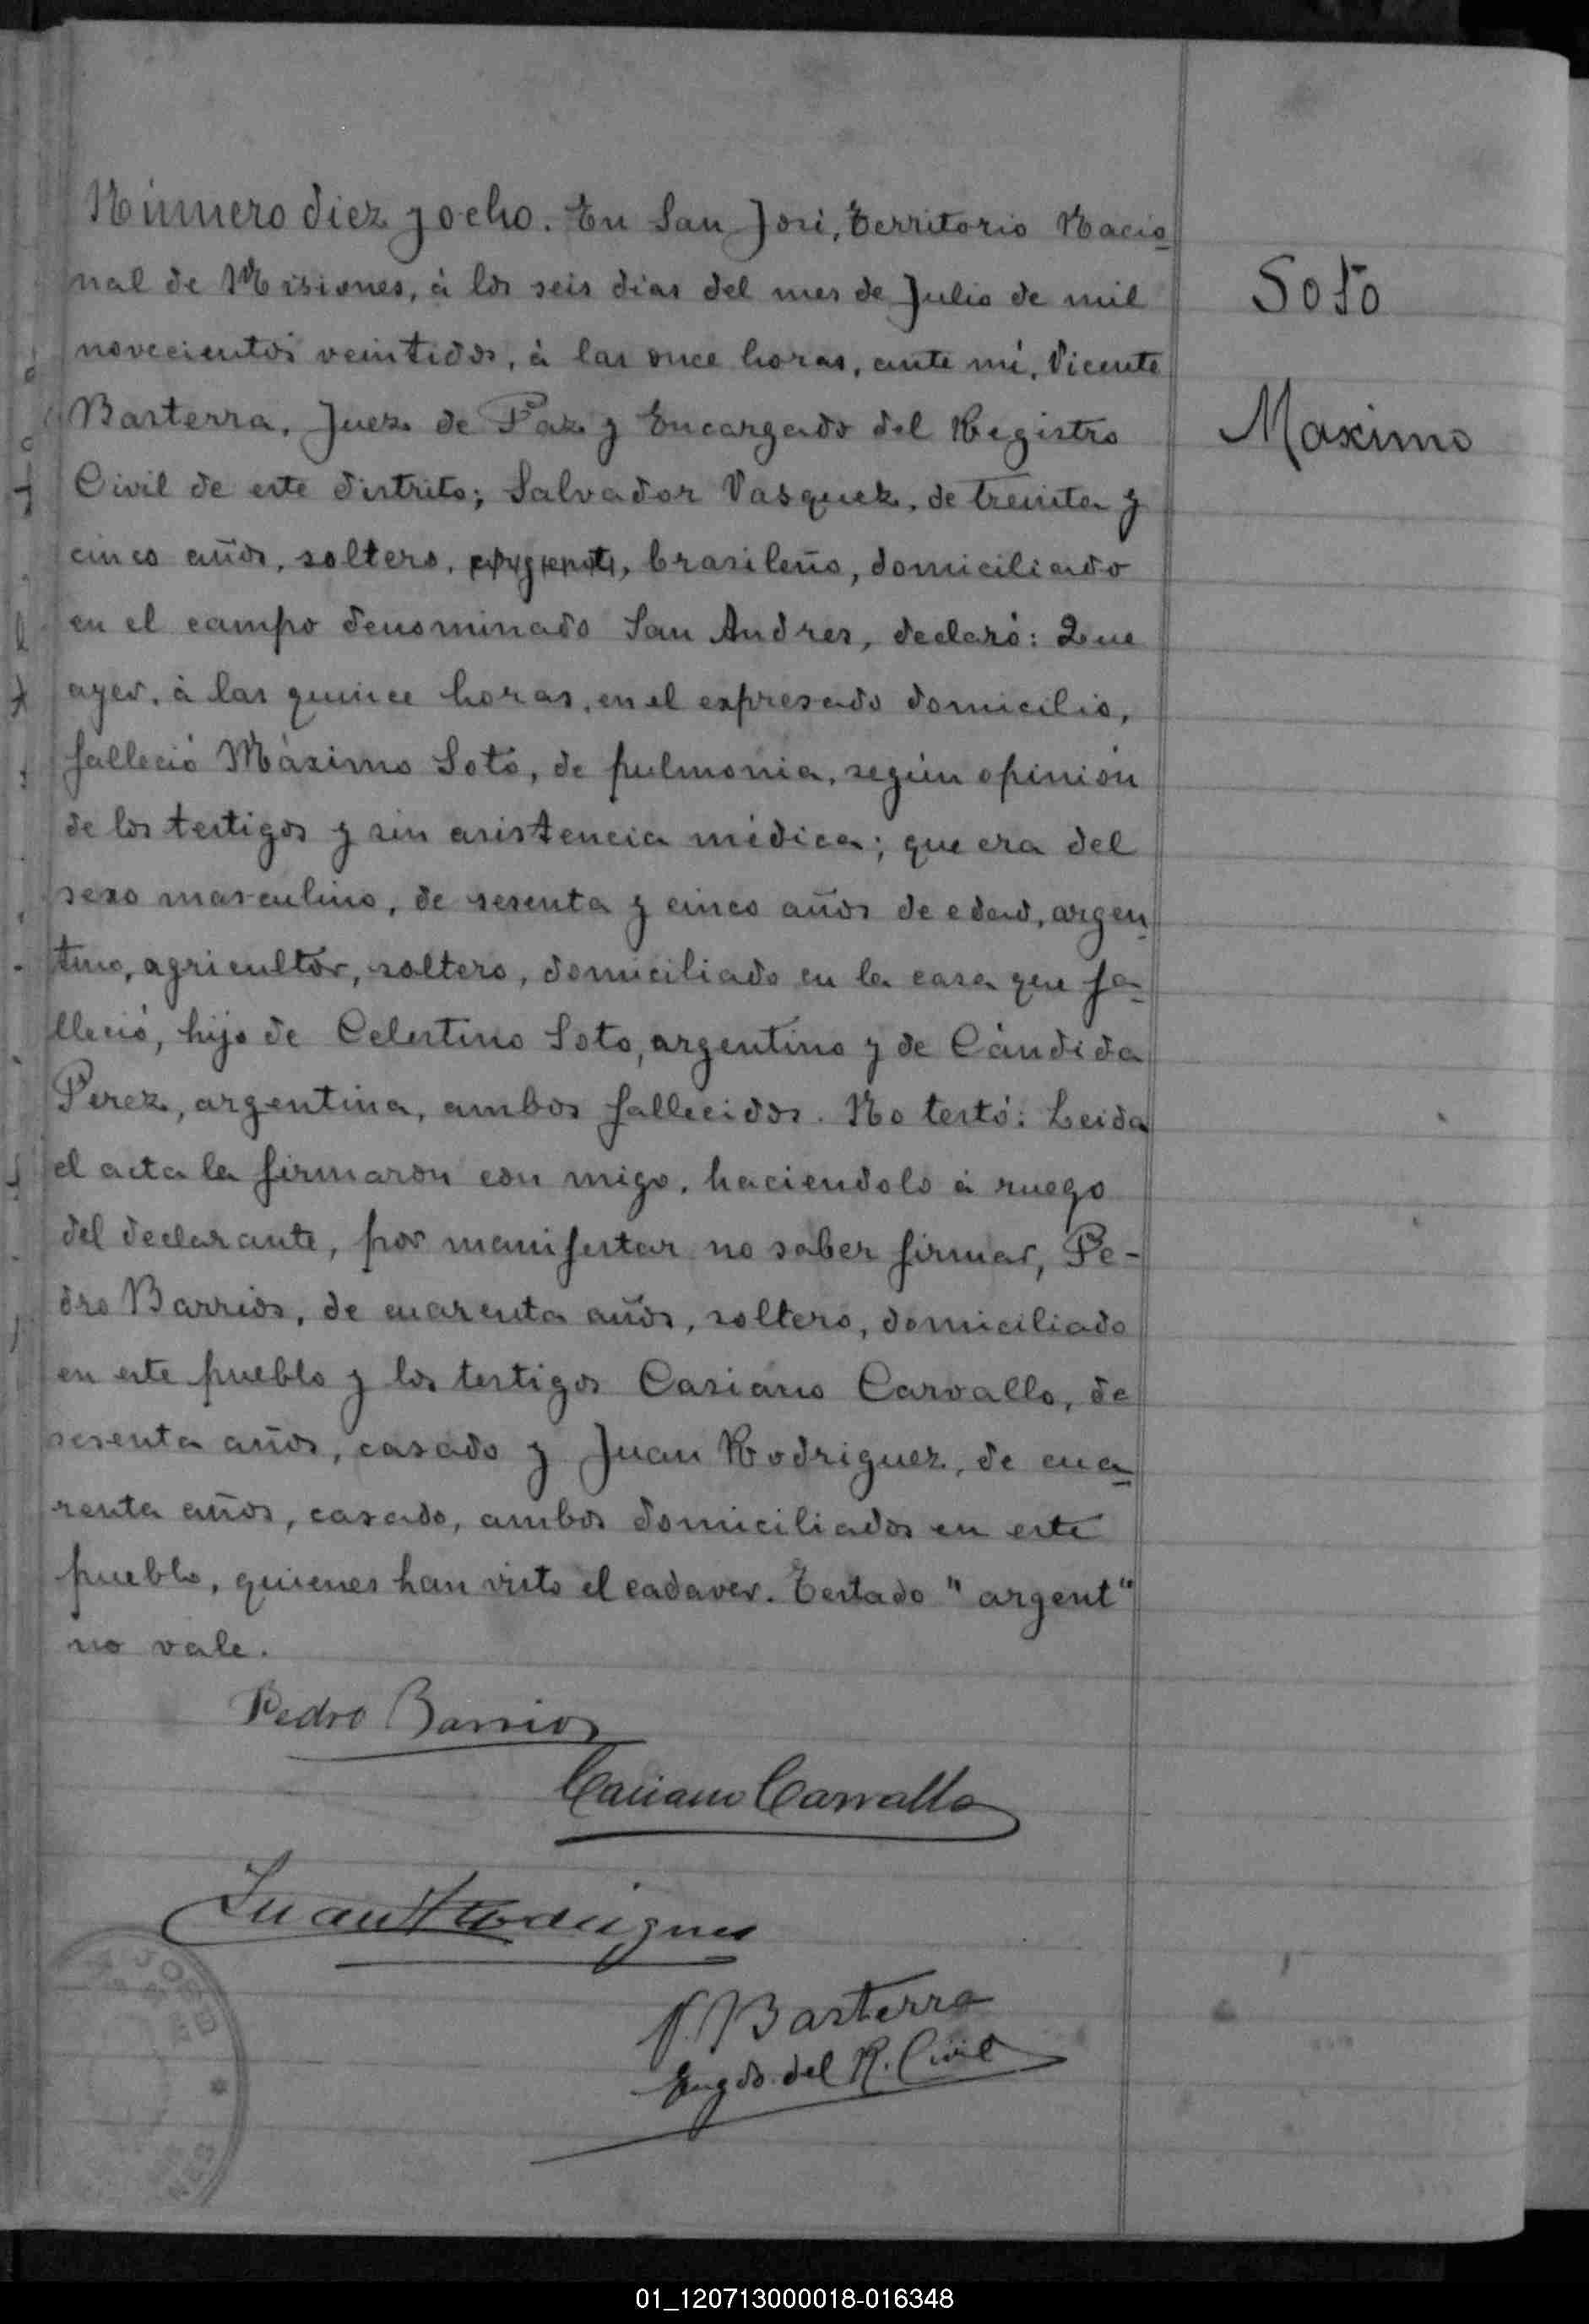 Número diez y ocho. En San José, Territorio Nacio
nal de Misiones, à los seis dias del mes de Julio de mil
novecientos veintidos, à las once horas, ante mi, Vicente
Basterra, Juez de Paz y Encargado del Registro
Civil de este distrito; Salvador Vasquez, de treinta y
cinco años, soltero, argent, brasileño, domiciliado
en el campo denominado San Andres, declaró: Que
ayer, à las quince horas, en el expresado domicilio,
falleció Máximo Soto, de pulmonia, según opinión
de los testigos y sin asistencia médica; que era del
sexo masculino, de sesenta y cinco años de edad, argen
tino, agricultor, soltero, domiciliado en la casa que fa
lleció, hijo de Celestino Soto, argentino y de Cándida
Perez, argentina, ambos fallecidos. No testó: Leida
el acta la firmaron con migo, haciendolo à ruego
del declarante, por manifestar no saber firmar, Pe-
dro Barrios, de cuarenta años, soltero, domiciliado
en este pueblo y los testigos Casiano Carvallo, de
sesenta años, casado y Juan Rodriguez, de cua
renta años, casado, ambos domiciliados en este
pueblo, quienes han visto el cadaver. Testado "argent"
no vale.
Soto
Maximo
Pedro Barrios
Casiano Carvallo
Juan Rodrigues
V. Basterra
Engdo. del R. Civil
JOSE
01_120713000018-016348